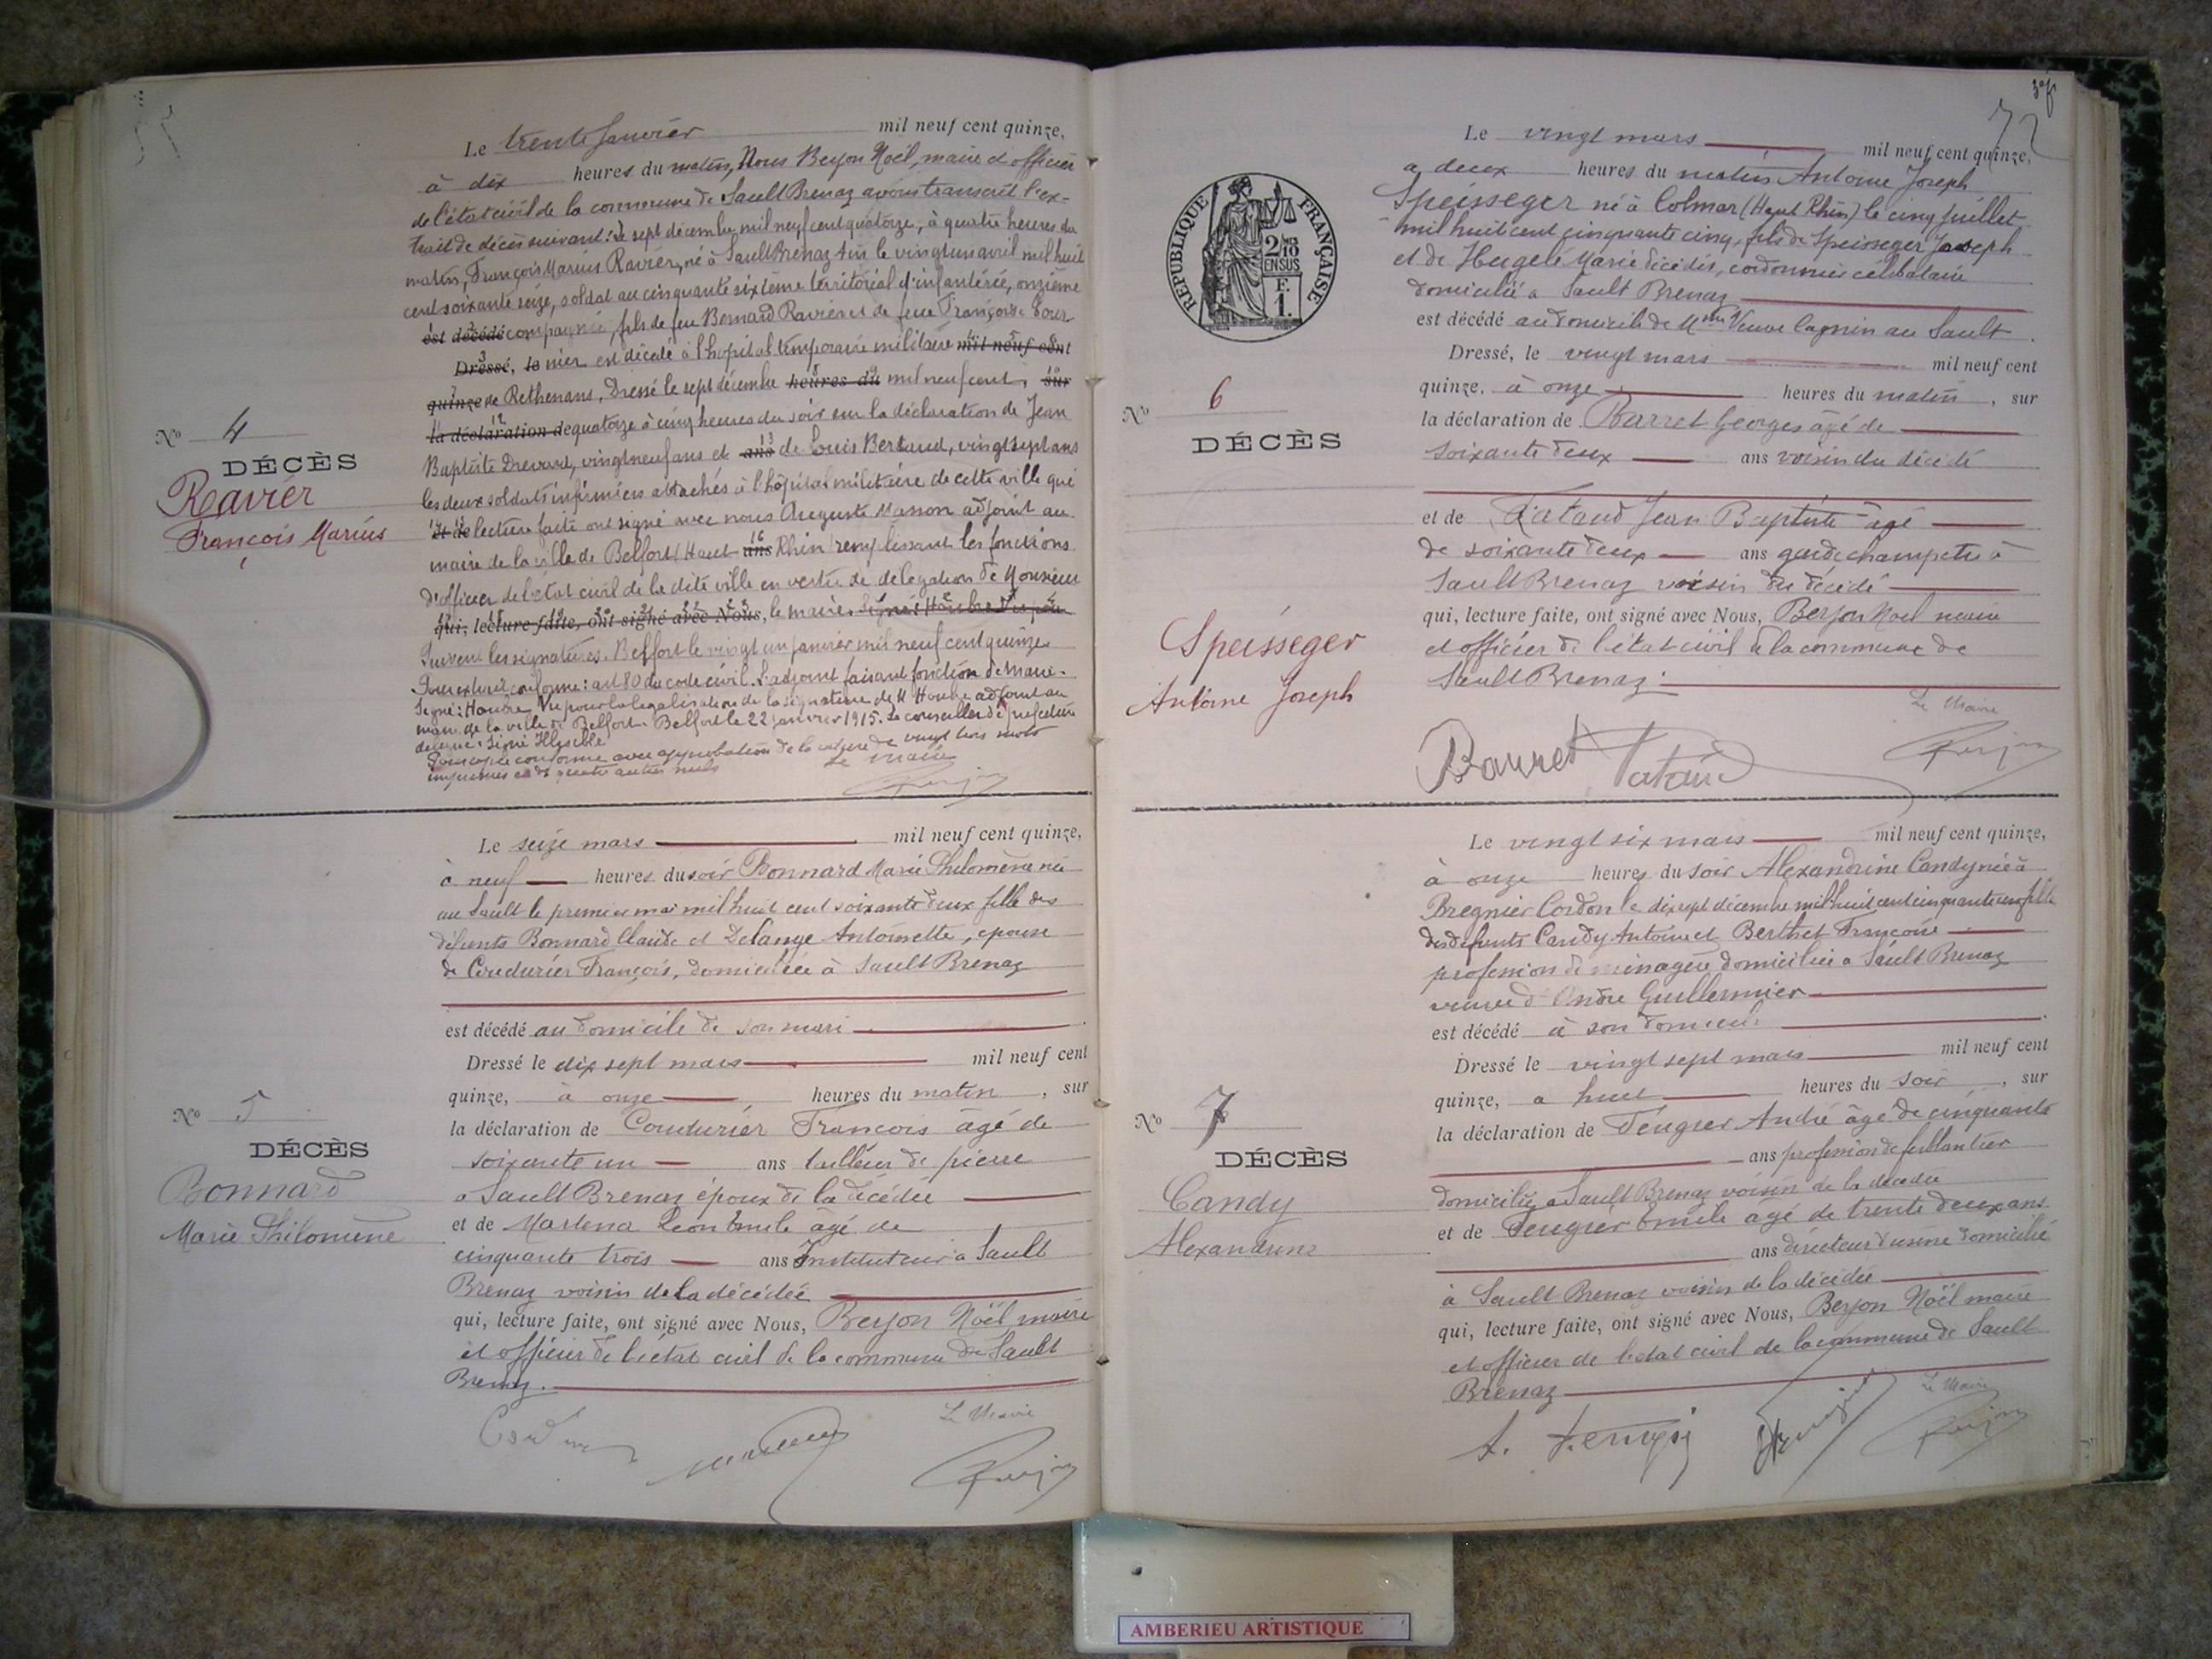 Le trente Janvier mil neuf cent quinze,
à dix heures du matin, Nous Berjon Noël, maire et officier
de l'état civil de la commune de Sault Brenaz avons transcrit l'ex-
trait de décès suivant: Le sept décembre mil neuf cent quatorze, à quatre heures du
matin, François Marius Ravier, né à Sault Brenaz Ain le vingt un avril mil huit
cent soixante seize, soldat au cinquante sixième territorial d'infanterie, onzième
est décédé compagnie, fils de feu Bernard Ravier et de feue Françoise Four-
Dressé, le nier est décédé à l'hopital temporaire militaire mil neuf cent
quinze de Rethenans, Dressé le sept décembre heures du mil neuf cent, sur
la déclaration de quatorze à cinq heures du soir sur la déclaration de Jean
Baptiste Drevard, vingt neuf ans et ans de Louis Bertaud, vingt sept ans
les deux soldats infirmiers attachés à l'hôpital militaire de cette ville qui
et de lecture faite ont signé avec nous Auguste Masson adjoint au
maire de la ville de Belfort (Haut ans Rhin) remplissant les fonctions
d'officier de l'état civil de la dite ville en vertu de délégation de Monsieur
qui, lecture faite, ont signé avec Nous, le maire.
Suivent les signatures. Belfort le vingt un janvier mil neuf cent quinze
Pour extrait conforme: art 80 du code civil. L'adjoint faisant fonction de Maire.
Signé: Houbre Vu pour la légalisation de la signature de M Houbre adjoint au
maire de la ville de Belfort. Belfort le 22 janvier 1915. Le conseiller de préfecture
délégué: Signé Illisible
Pour copie conforme avec approbation de la rature de vingt trois mots
imprimés et de quatre autres nuls Le Maire
Berjon
Nº 4
DÉCÈS
Ravier
François Marius
Le seize mars mil neuf cent quinze,
à neuf heures du soir Bonnard Marie Philomène née
au Sault le premier mai mil huit cent soixante deux fille des
défunts Bonnard Claude et Delange Antoinette, epouse
de Coudurier François, domiciliée à Sault Brenaz
est décédé au domicile de son mari
Dressé le dix sept mars mil neuf cent
quinze, à onze heures du matin, sur
la déclaration de Coudurier François âgé de
soixante un ans tailleur de pierre
a Sault Brenaz époux de la décédée
et de Martena Léon Emile âgé de
cinquante trois ans Instituteur à Sault
Brenaz voisin de la décédée
qui, lecture faite, ont signé avec Nous, Berjon Noël maire
et officier de l'état civil de la commune de Sault
Brenaz.
Le Maire
Berjon
Nº 5
DÉCÈS
Bonnard
Marie Philomène
72
Le vingt mars mil neuf cent quinze,
a deux heures du matin Antoine Joseph
Speisseger né à Colmar (Haut Rhin) le cinq juillet
mil huit cent cinquante cinq, fils de Speisseger Joseph
et de Hugele Marie décédés, cordonnier célibataire
domicilié a Sault Brenaz
est décédé au domicile de Mme Veuve Cagnin au Sault.
Dressé, le vingt mars mil neuf cent
quinze, à onze heures du matin, sur
la déclaration de Barret Georges âgé de
soixante deux ans voisin du décédé
et de Pataud Jean Baptiste âgé
de soixante deux ans garde champetre à
Sault Brenaz voisin du décédé
qui, lecture faite, ont signé avec Nous, Berjon Noel maire
et officier de l'état civil de la commune de
Sault Brenaz.
Le Maire
Barret Pataud Berjon
RÉPUBLIQUE FRANÇAISE
2/10 EN SUS
F. 1.
Nº 6
DÉCÈS
Speisseger
Antoine Joseph
Le vingt six mars mil neuf cent quinze,
à onze heures du soir Alexandrine Candy née à
Bregnier Cordon le dix sept décembre mil huit cent cinquante un fille
des défunts Candy Antoine et Berthet Françoise
profession de ménagère domiciliée a Sault Brenaz
veuve d'André Guillermier
est décédé à son domicile
Dressé le vingt sept mars mil neuf cent
quinze, a huit heures du soir, sur
la déclaration de Feugier André âgé de cinquante
ans profession de ferblantier
domicilié a Sault Brenaz voisin de la décédée
et de Feugier Emile agé de trente deux ans
ans directeur d'usine domicilié
à Sault Brenaz voisin de la décédée
qui, lecture faite, ont signé avec Nous, Berjon Noël maire
et officier de l'état civil de la commune de Sault
Brenaz
Le Maire
Berjon
Nº 7
DÉCÈS
Candy
Alexandrine
AMBERIEU ARTISTIQUE